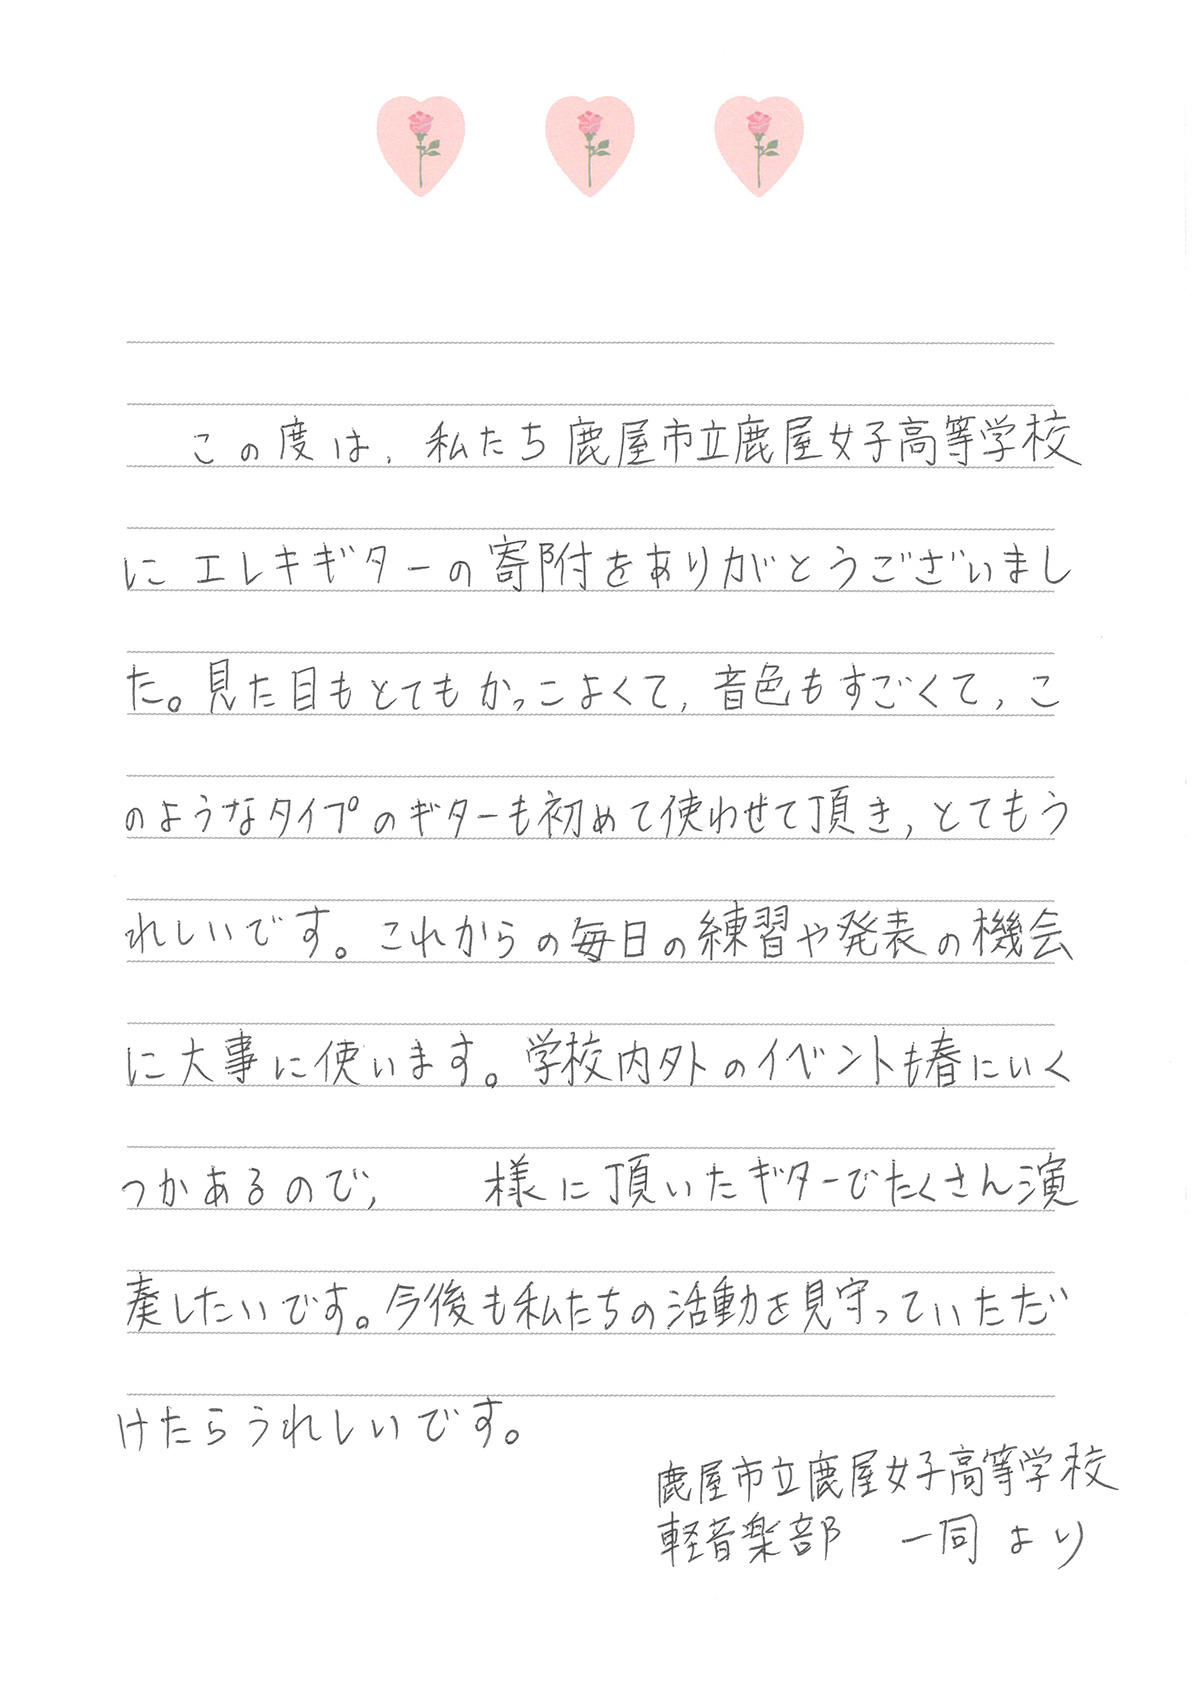 この度は、私たち鹿屋市立鹿屋女子高等学校
にエレキギターの寄附をありがとうございまし
た。見た目もとてもかっこよくて、音色もすごくて、こ
のようなタイプのギターも初めて使わせて頂き、とてもう
れしいです。これからの毎日の練習や発表の機会
に大事に使います。学校内外のイベントも春にいく
つかあるので、　　様に頂いたギターでたくさん演
奏したいです。今後も私たちの活動を見守っていただ
けたらうれしいです。
鹿屋市立鹿屋女子高等学校
軽音楽部　一同より